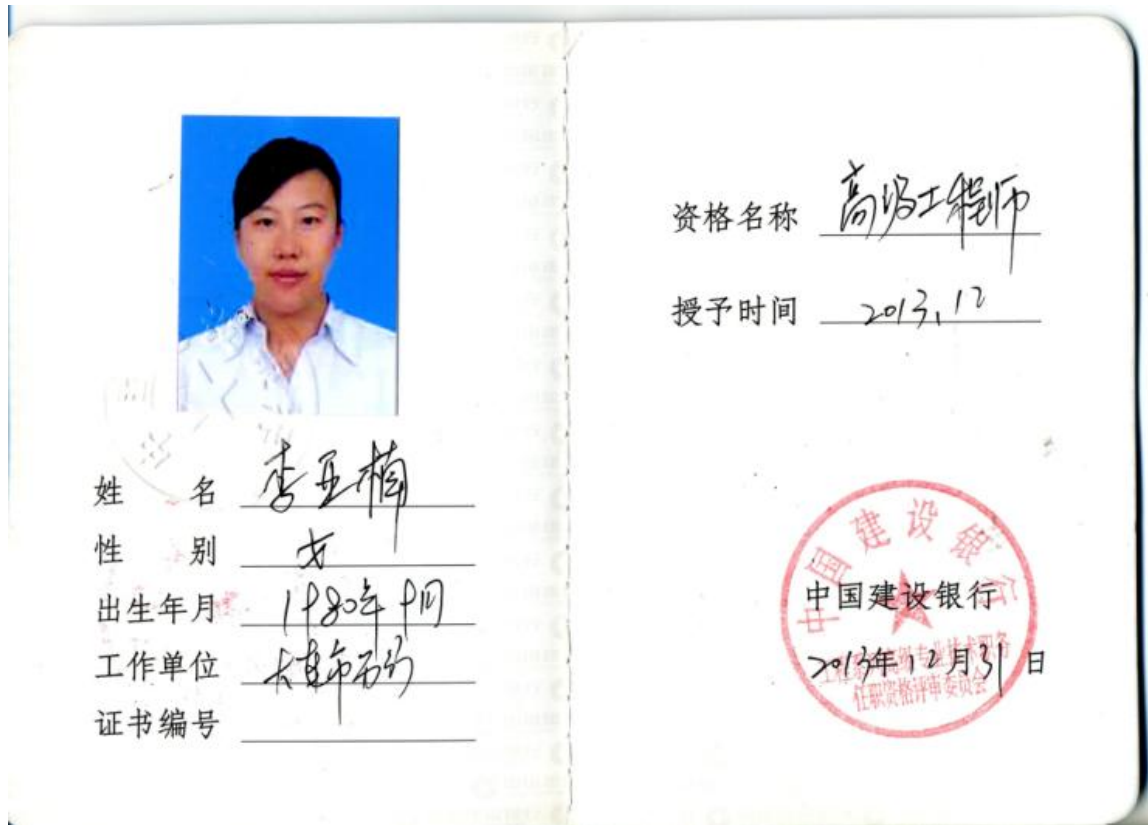 姓 名 李亚楠
性 别 女
出生年月 1980年9月
工作单位 大连市分行
证书编号
资格名称 高级工程师
授予时间 2013.12
中国建设银行
中国建设银行
2013年12月31日
工程系列高级专业技术职务
任职资格评审委员会